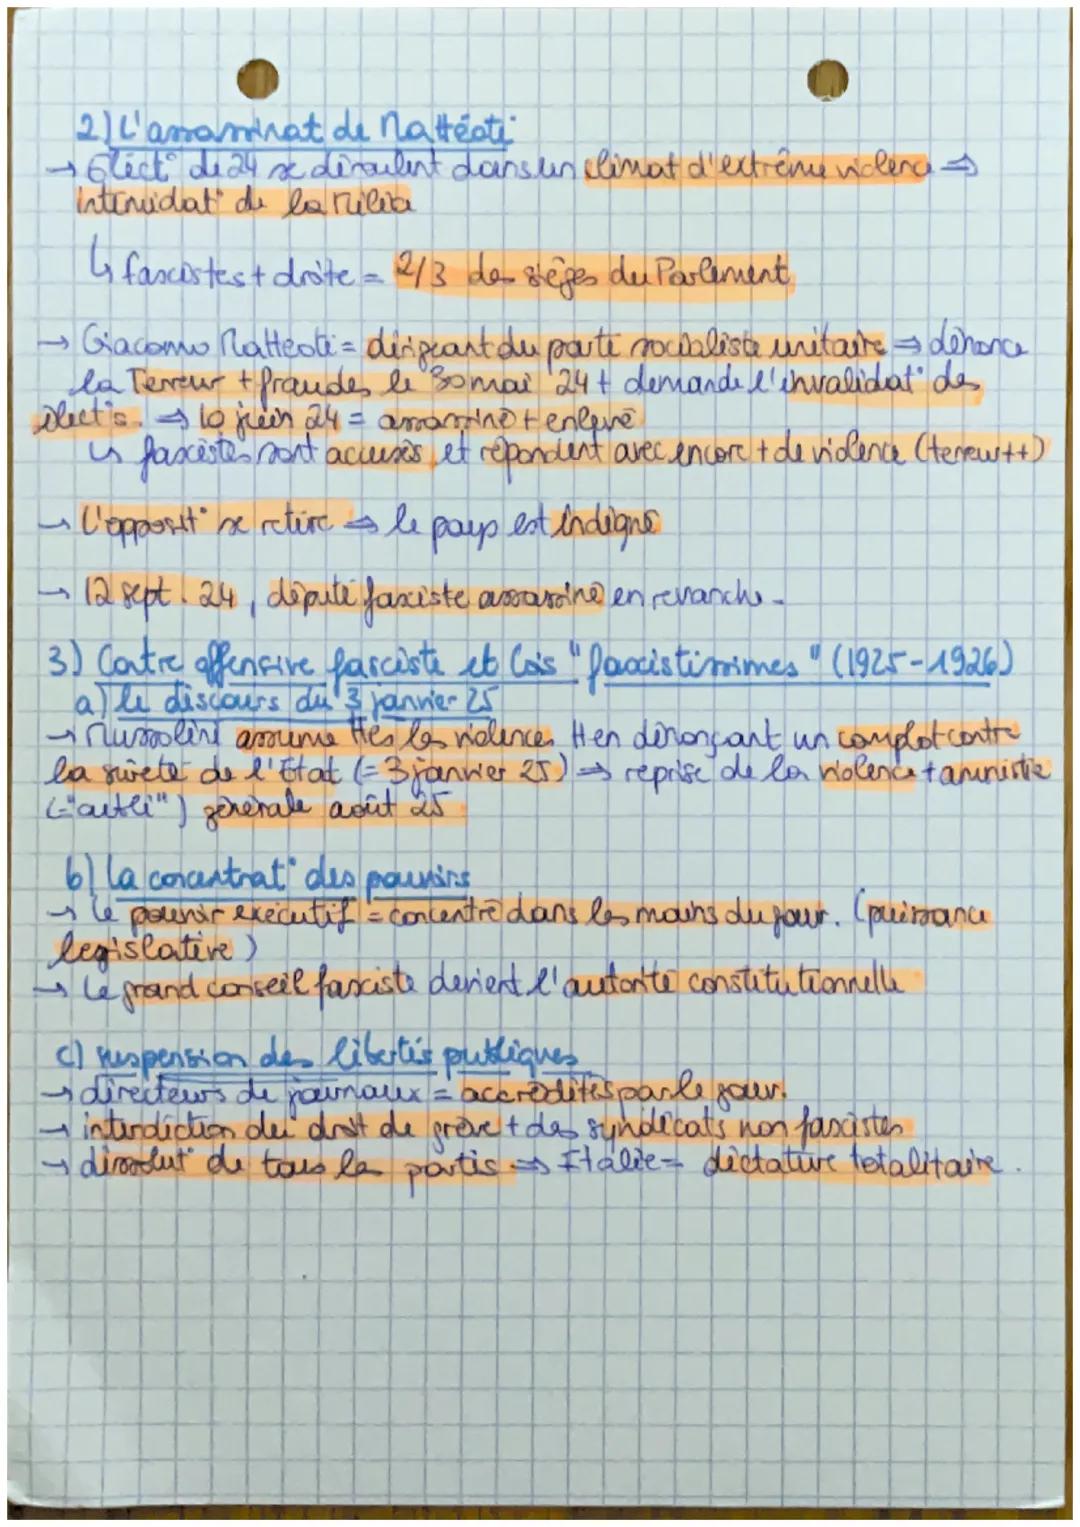 2) L'assassinat de Mattéoti
→ Élect° de 24 se déroulent dans un climat d'extrême violence ⇒
intimidat° de la milice
↳ fascistes + droite = 2/3 des sièges du Parlement
→ Giacomo Matteoti = dirigeant du parti socialiste unitaire ⇒ dénonce
la Terreur + fraudes le 30 mai 24 + demande l'invalidat° des
élect°s. ⇒ 10 juin 24 = assassiné + enlevé
↳ fascistes sont accusés et répondent avec encore + de violence (terreur++)
→ L'opposit° se retire ⇒ le pays est indigné
→ 12 sept. 24, député fasciste assassiné en revanche.
3) Contre offensive fasciste et lois "fascistissimes" (1925-1926)
a) le discours du 3 janvier 25
→ Mussolini assume ttes les violences tt en dénonçant un complot contre
la sûreté de l'État (= 3 janvier 25) ⇒ reprise de la violence + amnistie
(="oubli") générale août 25
b) la concentrat° des pouvoirs
→ le pouvoir exécutif = concentré dans les mains du gouv. (puissance
législative)
→ Le grand conseil fasciste devient l'autorité constitutionnelle
c) suspension des libertés publiques
→ directeurs de journaux = accrédités par le gouv.
→ interdiction du droit de grève + des syndicats non fascistes
→ dissolut° de tous les partis ⇒ Italie = dictature totalitaire.